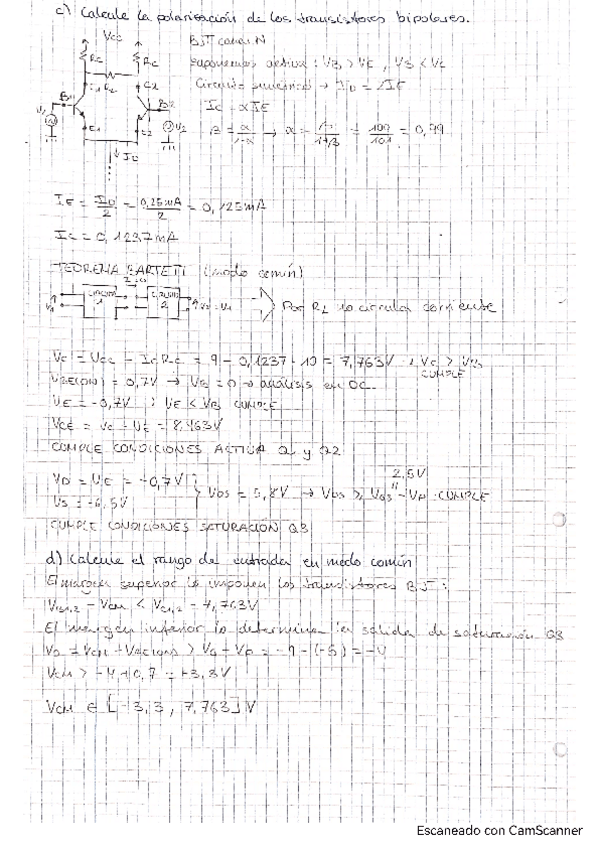 c) Calcule la polarización de los transistores bipolares.
Vcc
BJT canal N
Rc Rc
Suponemos activa: VB > VE, VB < VC
C1 RL C2
Circuito simétrico → ID = 2IE
B1 B2
IC = αIE
V1 V2
β = α/1-α → α = β/1+β = 100/101 = 0,99
E1 E2
↓ ID
IE = ID/2 = 0,25mA/2 = 0,125mA
IC = 0,1237mA
TEOREMA BARTETT (modo común)
Por RL no circula corriente
VC = VCC - IC RC = 9 - 0,1237 · 10 = 7,763V : VC > VB
CUMPLE
VBE(ON) = 0,7V → VB = 0 → análisis en DC
VE = -0,7V : VE < VB CUMPLE
VCE = VC - VE = 8,463V
CUMPLE CONDICIONES ACTIVA Q1 y Q2
VD = VE = -0,7V
VS = -6,5V
VDS = 5,8V → VDS ≥ VGS - VP CUMPLE
2,5V
CUMPLE CONDICIONES SATURACIÓN Q3
d) Calcule el rango de entrada en modo común
El margen superior lo imponen los transistores BJT:
VB1,2 = VCM < VC1,2 = 7,763V
El margen inferior lo determina la salida de saturación Q3
VD = VCM - VBE(ON) > VG - VP = -9 - (-5) = -4
VCM > -4 + 0,7 = -3,3V
VCM ∈ [-3,3, 7,763] V
Escaneado con CamScanner